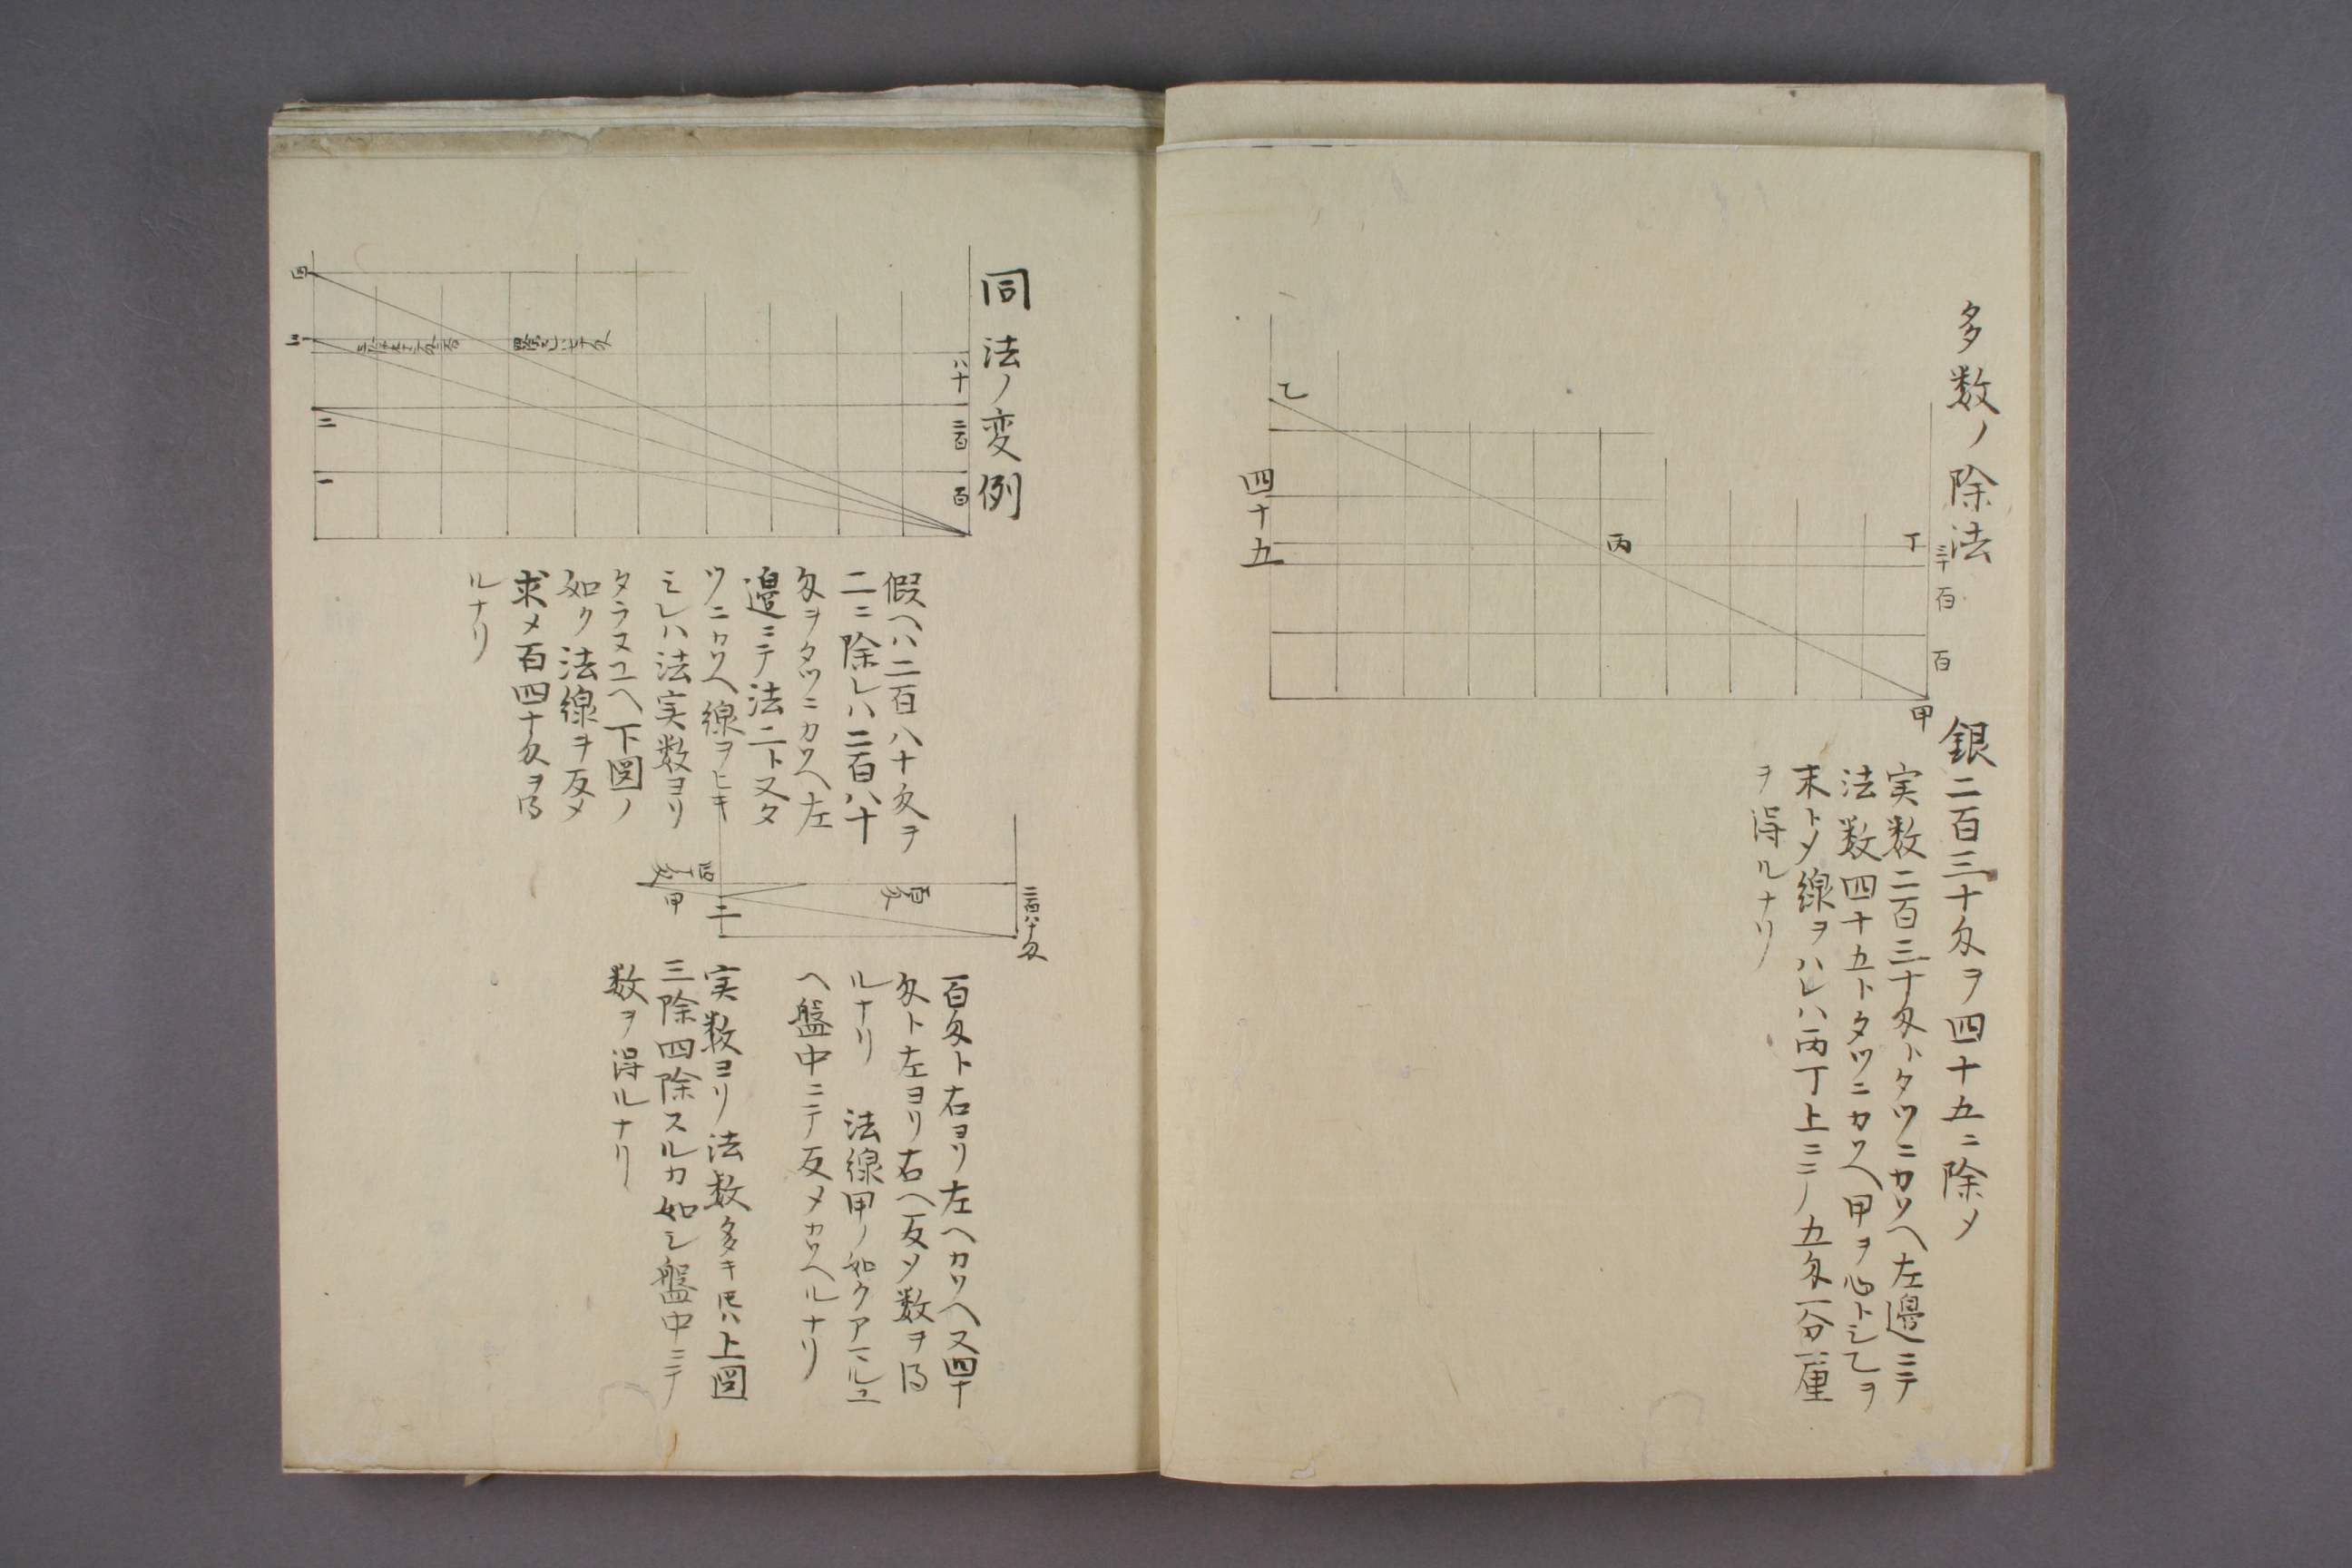 多数ノ除法
乙
四十五
丙
丁
三十
百
百
甲
銀二百三十匁ヲ四十五ニ除メ
実数二百三十匁トタツニカソヘ左邉ニテ
法数四十五トタツニカソヘ甲ヲ心トシ乙ヲ
末トメ線ヲハレハ丙丁上ニニノ五匁一分一厘
ヲ得ルナリ
同法ノ変例
八十
二百
百
四
三
二
一
假ヘハ二百八十匁ヲ
二ニ除レハ二百八十
匁ヲタツニカソヘ左
邉ニテ法二ト又タ
ツニカソヘ線ヲヒキ
ミレハ法実数ヨリ
タラヌユヘ下図ノ
如ク法線ヲ反メ
求メ百四十匁ヲ得
ルナリ
二百八十匁
百匁
四十匁
甲
二
百匁ト右ヨリ左ヘカソヘ又四十
匁ト左ヨリ右ヘ反メ数ヲ得
ルナリ 法線甲ノ如クアマルユ
ヘ盤中ニテ反メカソヘルナリ
実数ヨリ法数多キ時ハ上図
三除四除スルカ如シ盤中ニテ
数ヲ得ルナリ